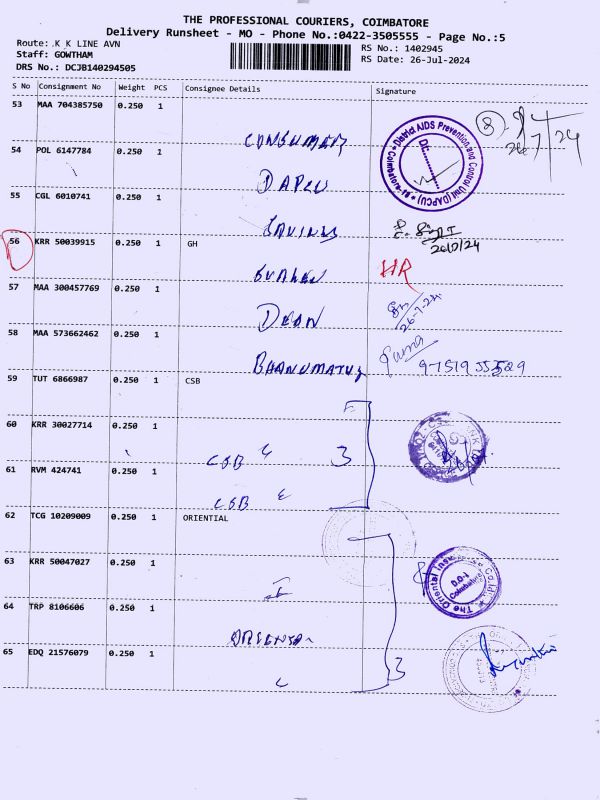 THE PROFESSIONAL COURIERS, COIMBATORE
Delivery Runsheet - MO - Phone No.:0422-3505555 - Page No.:5
Route: .K K LINE AVN
RS No.: 1402945
Staff: GOWTHAM
RS Date: 26-Jul-2024
DRS No.: DCJB140294505
S No Consignment No Weight PCS Consignee Details Signature
53 MAA 704385750 0.250 1
CONSUMER
8 26/7/24
District AIDS Prevention and Control Unit (DAPCU) Coimbatore
54 POL 6147784 0.250 1
DAPCU
55 CGL 6010741 0.250 1
SAVINGS
56 KRR 50039915 0.250 1 GH
HR
57 MAA 300457769 0.250 1
DEAN
26-7-24
58 MAA 573662462 0.250 1
BHANUMATHY
97519 55529
59 TUT 6866987 0.250 1 CSB
60 KRR 30027714 0.250 1
CSB 3
61 RVM 424741 0.250 1
CSB
62 TCG 10209009 0.250 1 ORIENTIAL
63 KRR 50047027 0.250 1
The Oriental Insurance Co. Ltd. D.O-I Coimbatore
64 TRP 8106606 0.250 1
65 EDQ 21576079 0.250 1
3